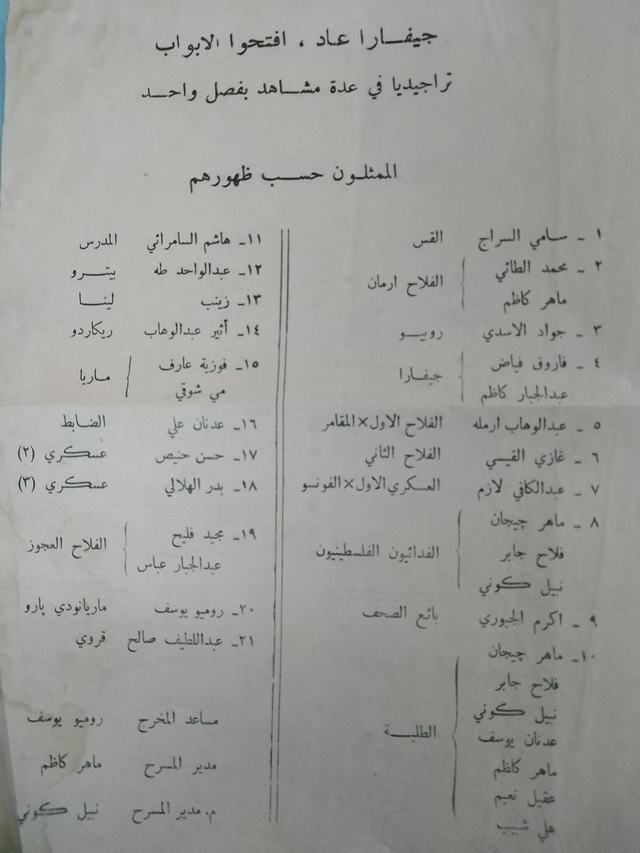 جيفـارا عـاد ، افتحـوا الابواب
تراجيديا في عدة مشـاهد بفصل واحـد
الممثلـون حسـب ظهورهم
١ ـ سـامي السراج القس
٢ ـ محمد الطائي
ماهر كاظم
الفلاح ارمان
٣ ـ جواد الاسدي روبيـو
٤ ـ فاروق فياض
عبدالجبار كاظم
جيفـارا
٥ ـ عبدالوهاب ارمله الفلاح الاول×المقامر
٦ ـ غازي القيسي الفلاح الثاني
٧ ـ عبدالكافي لازم العسكري الاول×الفونسو
٨ ـ ماهر چيجان
فلاح جابر
نبيل كوني
الفدائيون الفلسطينيون
٩ ـ اكرم الجبوري بائع الصحف
١٠ـ ماهر چيجان
فلاح جابر
نبيل كوني
عدنان يوسف
ماهر كاظم
عقيل نعيم
علي شبيب
الطلبـة
١١ـ هاشم السامرائي المدرس
١٢ـ عبدالواحد طه بيتـرو
١٣ـ زينب لينـا
١٤ـ أثير عبدالوهاب ريكاردو
١٥ـ فوزية عارف
مي شوقي
ماريا
١٦ـ عدنان علي الضابط
١٧ـ حسن حنيص عسكري (٢)
١٨ـ بدر الهلالي عسكري (٣)
١٩ـ مجيد فليح
عبدالجبار عباس
الفلاح العجوز
٢٠ـ روميو يوسف ماريانودي پارو
٢١ـ عبداللطيف صالح قروي
مساعد المخرج روميو يوسف
مدير المسرح ماهر كاظم
م. مدير المسرح نبيل كوني